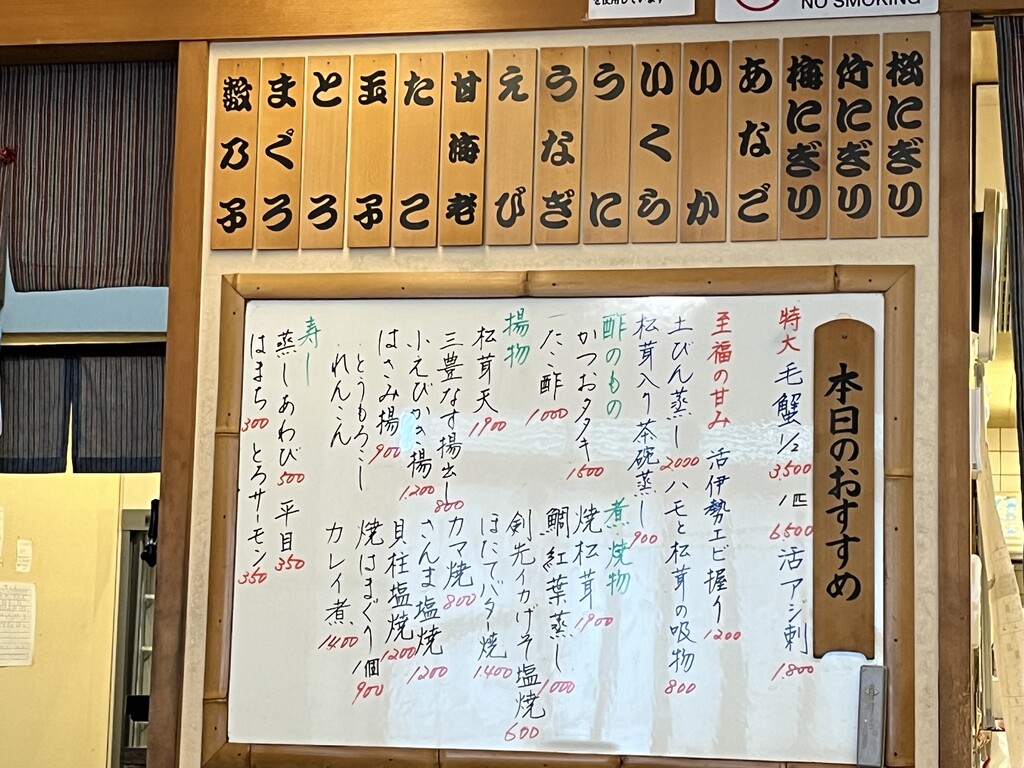 を使用しています
NO SMOKING
松にぎり
竹にぎり
梅にぎり
あなご
いか
いくら
うに
うなぎ
えび
甘海老
たこ
玉子
とろ
まぐろ
数乃子
本日のおすすめ
特大毛蟹1/2 3,500 1匹 6,500 活アジ刺 1,800
至福の甘み 活伊勢エビ握り 1200
土びん蒸し 2000 ハモと松茸の吸物 800
松茸入り茶碗蒸し 900
酢のもの
かつおタタキ 1500
たこ酢 1000
揚物
松茸天 1900
三豊なす揚出し 800
小えびかき揚 1200
はさみ揚 900
とうもろこし
れんこん
煮焼物
焼松茸 1900
鯛紅葉蒸し 1000
剣先イカげそ塩焼 600
ほたてバタ焼 1,400
カマ焼 800
さんま塩焼 1200
貝柱塩焼 1200
焼はまぐり1個 900
カレイ煮 1400
寿し
蒸しあわび 500 平目 350
はまち 300 とろサーモン 350